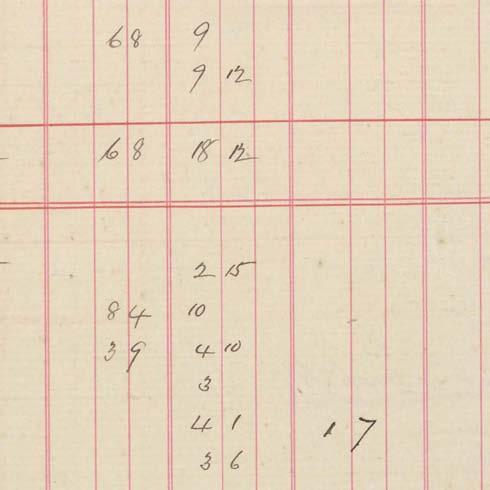 68 9
9 12
68 18 12
2 15
84 10
39 4 10
3
4 1 1 7
3 6